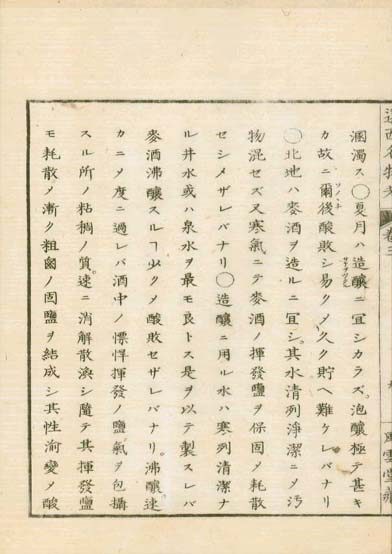 遠西名物考 巻三
風雲堂蔵
溷濁ス〇夏月ハ造釀ニ冝シカラズ。泡釀極テ甚キ
カ故ニ爾後ソノノチ酸敗シ易クメ久ク貯ヘ難ケレバナリ
〇北地ハ麥酒ヲ造ルニ冝シ。其水清冽淨潔ニメ汚
物混セズ又寒氣ニテ麥酒ノ揮發鹽ヲ保固メ耗散
セシメザレバナリ〇造釀ニ用ル水ハ寒冽清潔ナ
ル井水或ハ泉水ヲ最モ良トス是ヲ以テ製スレバ
麥酒沸釀スルヿ少クメ酸敗セザレバナリ。沸釀速
カニメ度ニ過レバ酒中ノ慓悍揮發ノ鹽氣ヲ包攝
スル所ノ粘稠ノ質。速ニ消解散渙シ隨テ其揮發鹽
モ耗散メ漸ク粗鹵ノ固鹽ヲ結成シ其性渝變メ酸